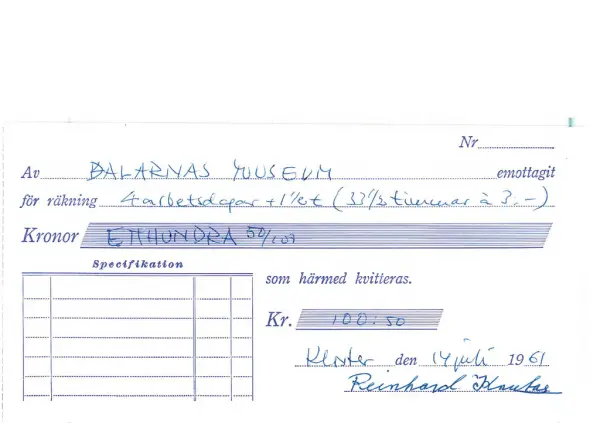 Nr
Av DALARNAS MUSEUM emottagit
för räkning 4 arbetsdagar + 1 (33 1/2 timmar à 3.-)
Kronor ETTHUNDRA 50/100
Specifikation
som härmed kvitteras.
Kr. 100:50
den 14 juli 1961
Reinhard